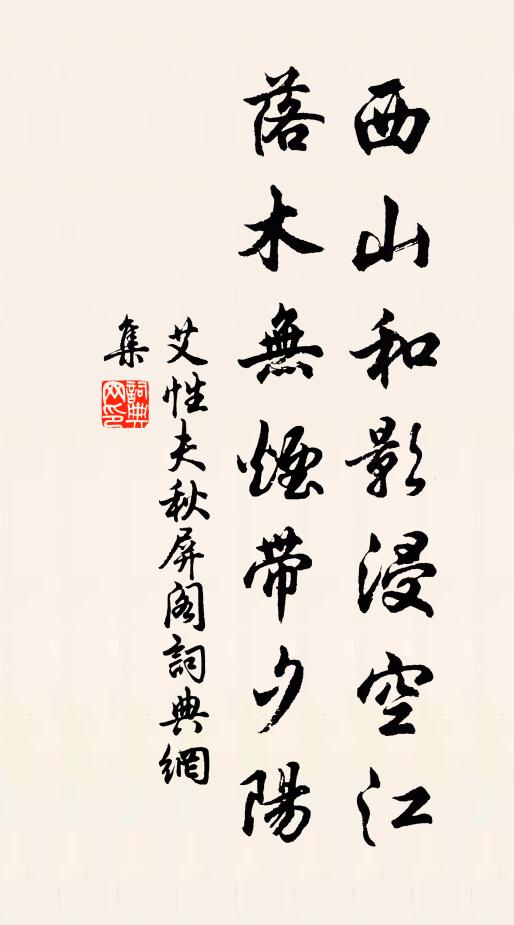 西山和影浸空江
落木無煙帶夕陽
艾性夫秋屏阁詞典網
集
詞典網印